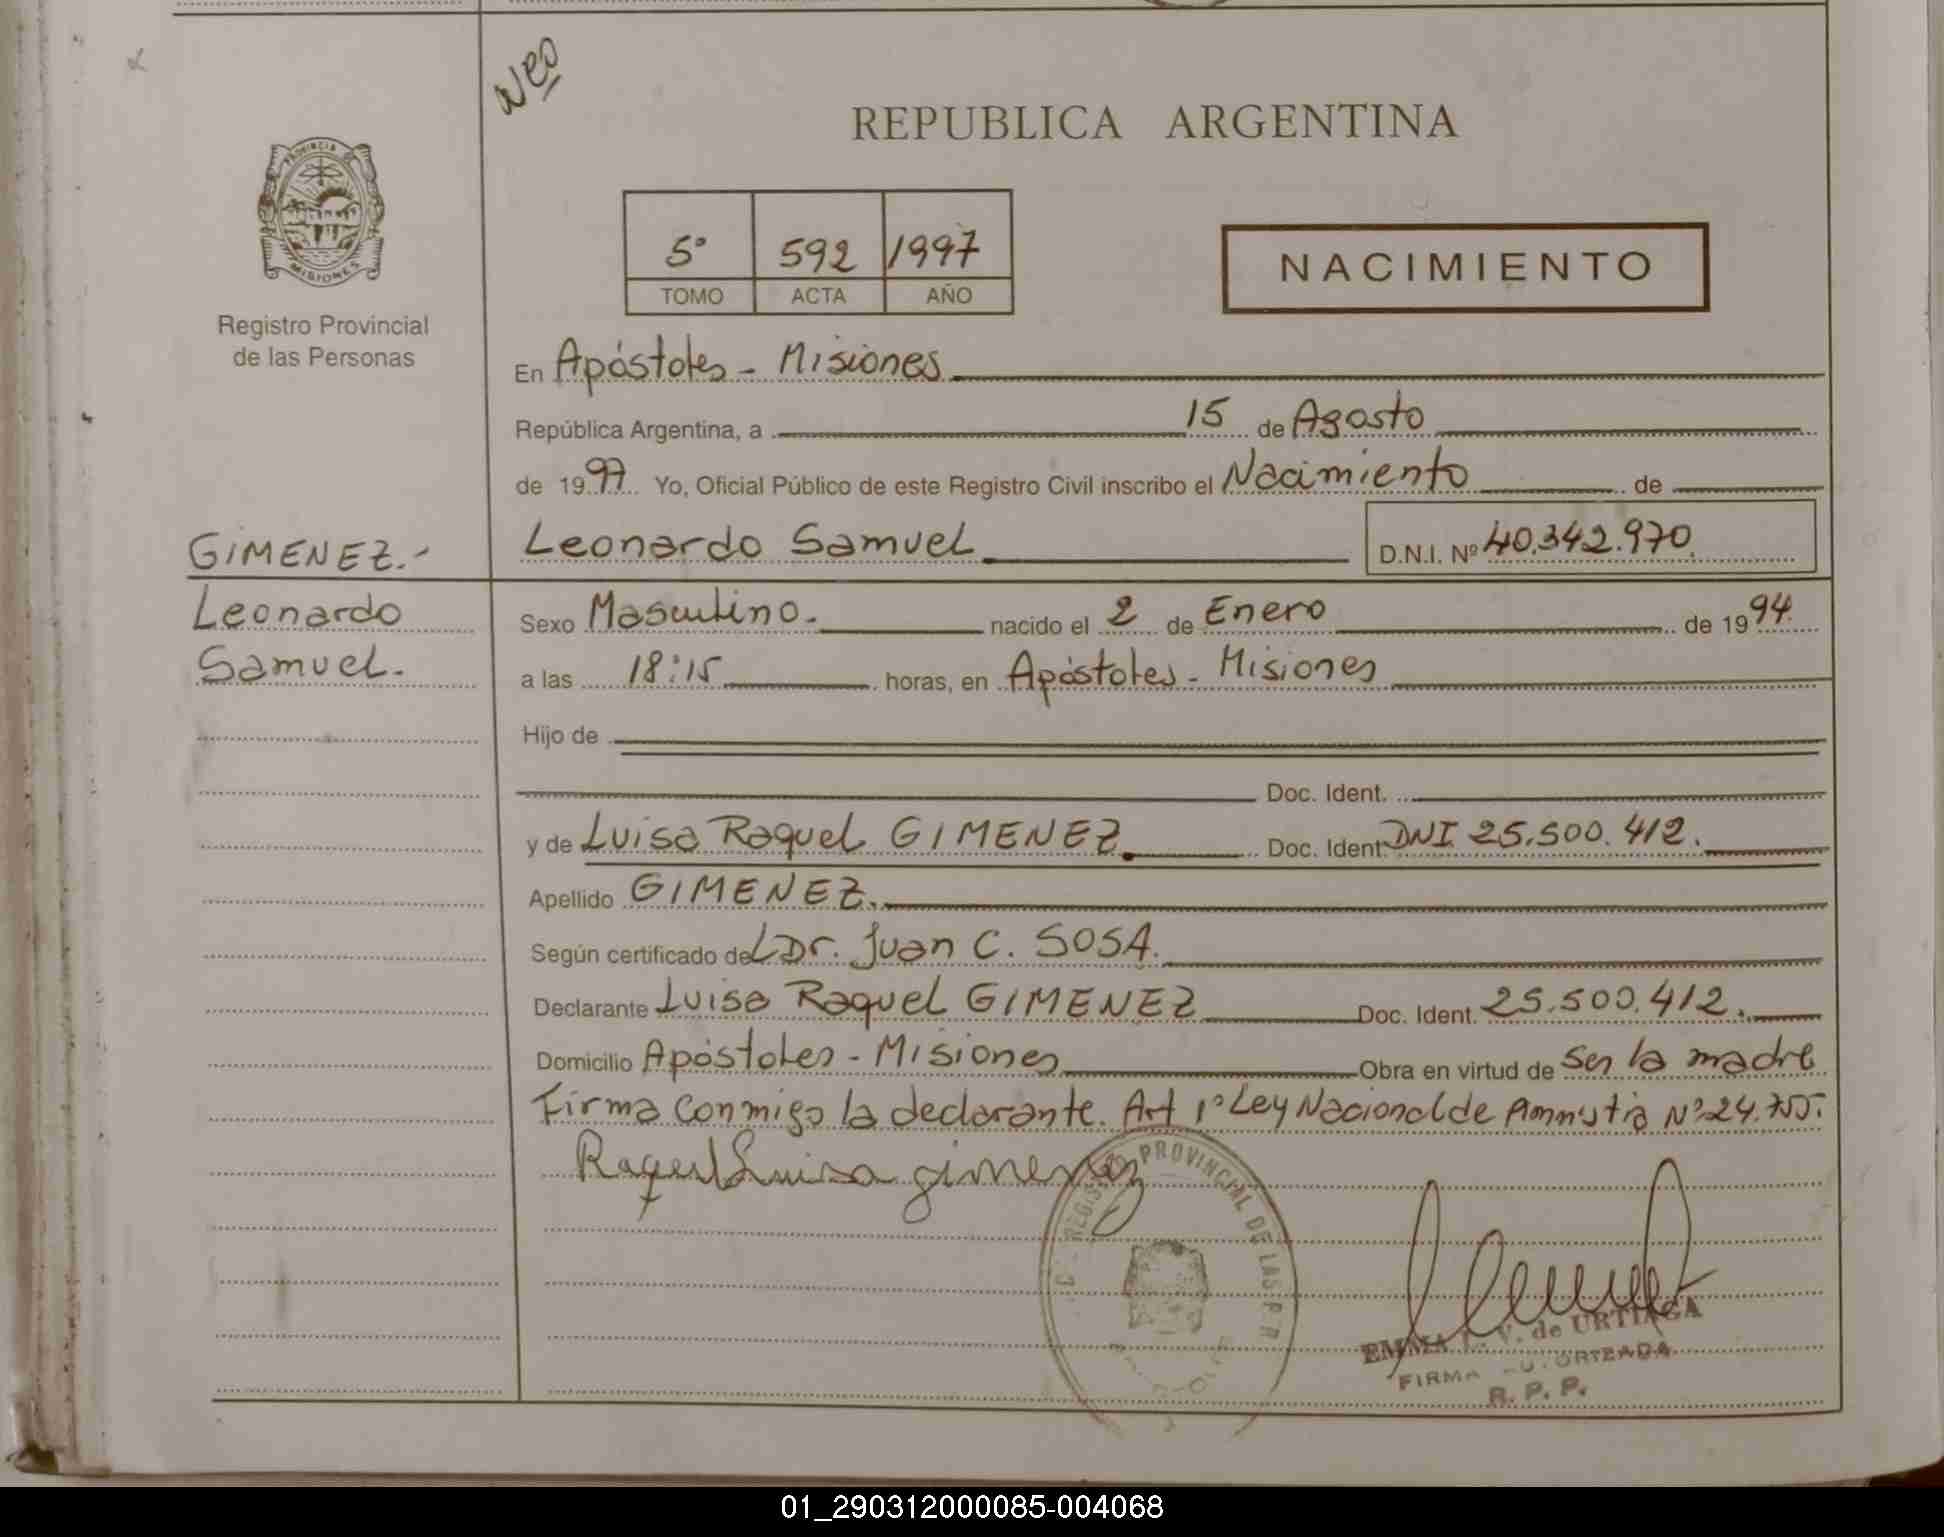 Neo
REPUBLICA ARGENTINA
PROVINCIA DE
MISIONES
Registro Provincial
de las Personas
5° 592 1997
TOMO ACTA AÑO
NACIMIENTO
En Apóstoles - Misiones
República Argentina, a 15 de Agosto
de 1997 Yo, Oficial Público de este Registro Civil inscribo el Nacimiento de
GIMENEZ.- Leonardo Samuel D.N.I. Nº 40.342.970
Leonardo Sexo Masculino. nacido el 2 de Enero de 1994.
Samuel. a las 18:15 horas, en Apóstoles - Misiones
Hijo de
Doc. Ident.
y de Luisa Raquel GIMENEZ. Doc. Ident. DNI 25.500.412.
Apellido GIMENEZ.
Según certificado del Dr. Juan C. SOSA.
Declarante Luisa Raquel GIMENEZ Doc. Ident. 25.500.412.
Domicilio Apóstoles - Misiones Obra en virtud de ser la madre
Firma conmigo la declarante. Art 1° Ley Nacional de Amnistia N° 24.755.
Raquel Luisa gimenez
REGISTRO PROVINCIAL DE LAS P
EMMA V. de URTIAGA
FIRMA AUTORIZADA
R. P. P.
01_290312000085-004068